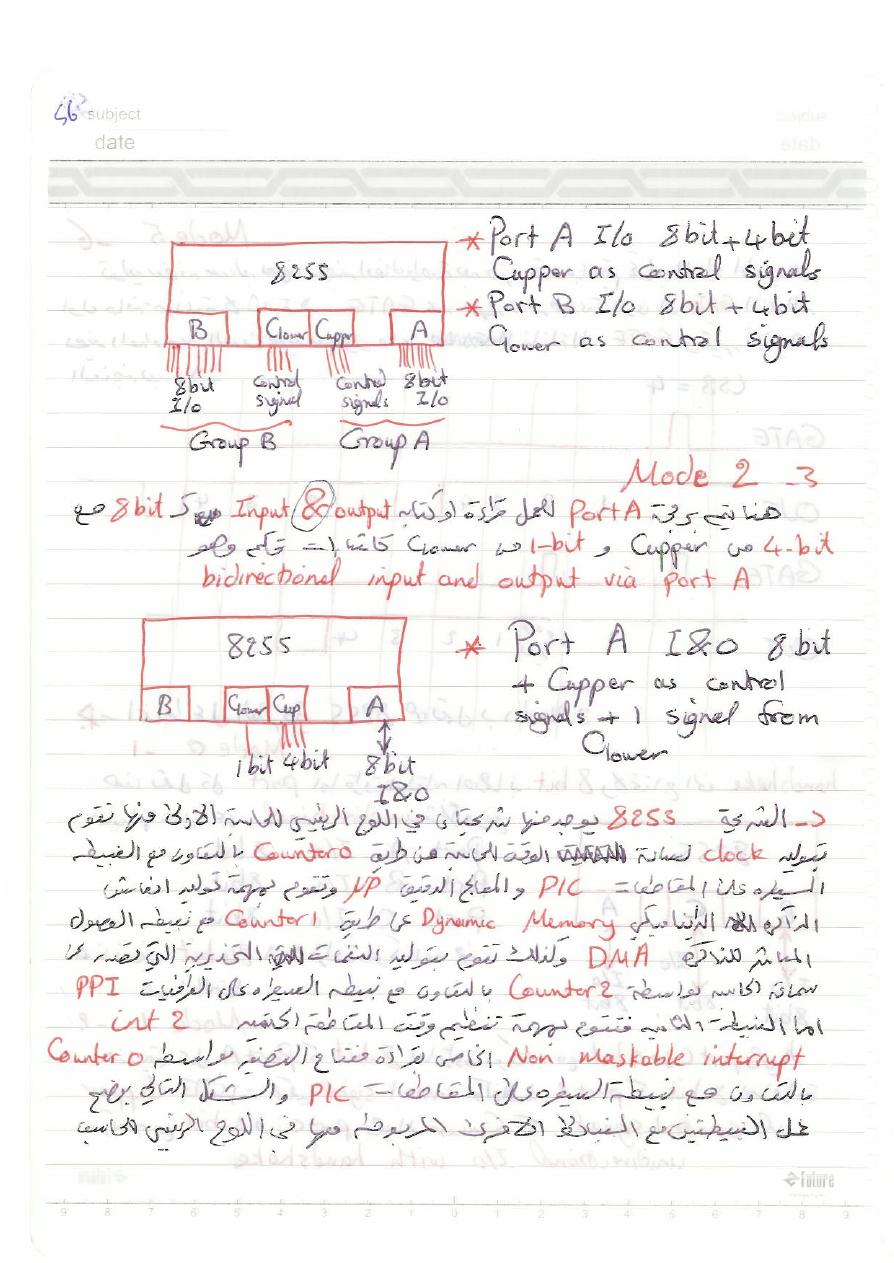 subject
date
8255
B
Clower
Cupper
A
8bit I/O
control signal
control signals
8bit I/O
Group B
Group A
* Port A I/O 8bit + 4bit
Cupper as control signals
* Port B I/O 8bit + 4bit
Clower as control signals
3- Mode 2
هنا يتم برمجة Port A لعمل قراءة او كتابه Input & output لـ 8bit مع
4-bit من Cupper و 1-bit من Clower كاشارات تحكم وهو
bidirectional input and output via port A
8255
B
Clower
Cup
A
1bit
4bit
8bit
I&O
* Port A I&O 8bit
+ Cupper as control
signals + 1 signal from
Clower
الشريحة 8255 يوجد منها شريحتان في اللوح الرئيسي للحاسبة الاولى منها تقوم
بتوليد clock لصيانة الوقت للحاسبة عن طريق Counter 0 بالتعاون مع نبيطه
السيطره على المقاطعات PIC و المعالج الدقيق µP وتقوم بمهمة توليد انعاش
الذاكره الديناميكي Dynamic Memory عن طريق Counter 1 مع نبيطه الوصول
المباشر للذاكره DMA وكذلك تقوم بتوليد النغمات التحذيرية التي تصدر عن
سماعة الحاسبه بواسطة Counter 2 بالتعاون مع نبيطه السيطره على الطرفيات PPI
اما النبيطة الثانيه فتقوم بمهمة تنظيم وقت المقاطعة int 2
Non maskable interrupt الخاص بقراءة مفتاح التصفير بواسطه Counter 0
بالتعاون مع نبيطة السيطره على المقاطعات PIC والشكل التالي يوضح
عمل النبيطتين مع النبائط الاخرى المربوطه معها في اللوح الرئيسي للحاسب
future